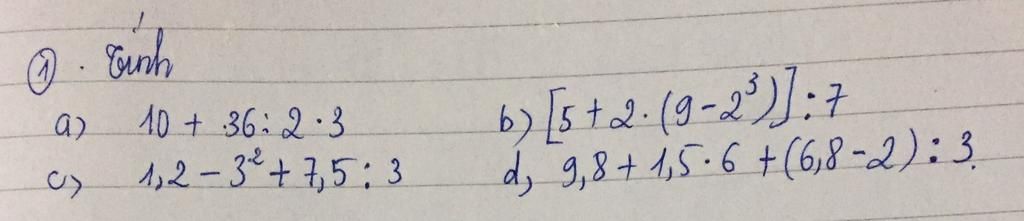 ① . Tính
a) 10 + 36 : 2 · 3 b) [5 + 2 · (9 - 2³)] : 7
c) 1,2 - 3² + 7,5 : 3 d, 9,8 + 1,5 · 6 + (6,8 - 2) : 3.